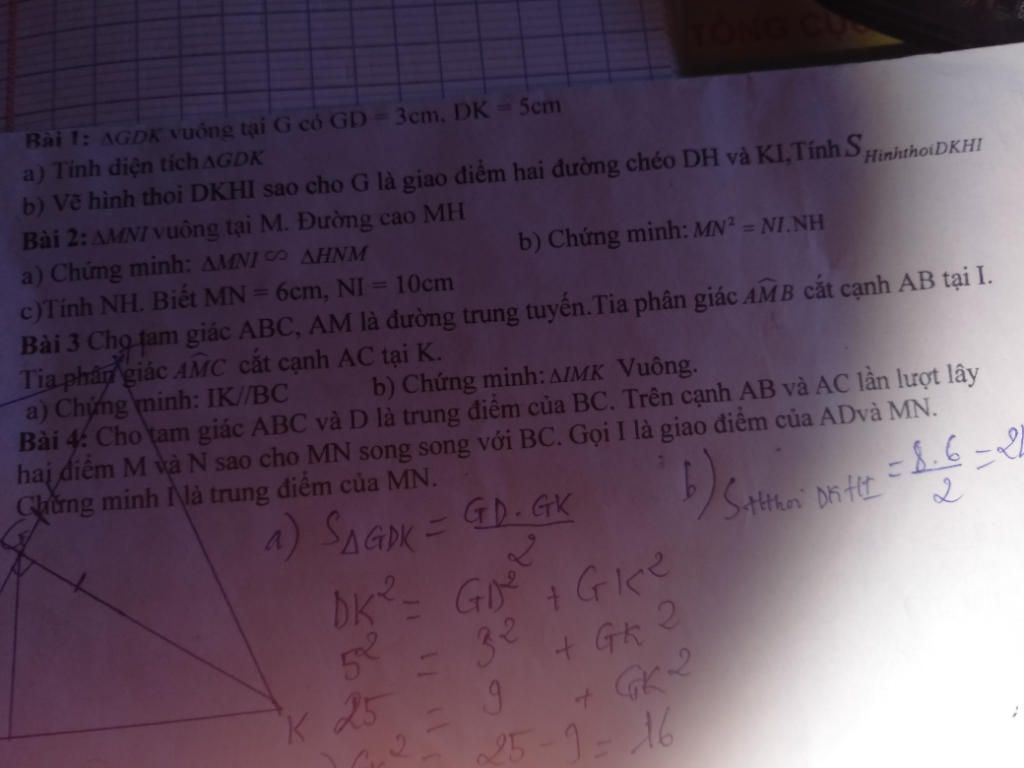 TỔNG CỤC
Bài 1: ΔGDK vuông tại G có GD = 3cm, DK = 5cm
a) Tính diện tích ΔGDK
b) Vẽ hình thoi DKHI sao cho G là giao điểm hai đường chéo DH và KI,Tính S HinhthoiDKHI
Bài 2: ΔMNI vuông tại M. Đường cao MH
a) Chứng minh: ΔMNI ∽ ΔHNM b) Chứng minh: MN² = NI.NH
c)Tính NH. Biết MN = 6cm, NI = 10cm
Bài 3 Cho tam giác ABC, AM là đường trung tuyến.Tia phân giác AMB cắt cạnh AB tại I.
Tia phân giác AMC cắt cạnh AC tại K.
a) Chứng minh: IK//BC b) Chứng minh: ΔIMK Vuông.
Bài 4: Cho tam giác ABC và D là trung điểm của BC. Trên cạnh AB và AC lần lượt lấy
hai điểm M và N sao cho MN song song với BC. Gọi I là giao điểm của ADvà MN.
Chứng minh I là trung điểm của MN.
a) SΔGDK = GD . GK / 2
b) S Hthoi DKHI = 8.6 / 2 =
DK² = GD² + GK²
5² = 3² + GK²
25 = 9 + GK²
K
= 25 - 9 = 16